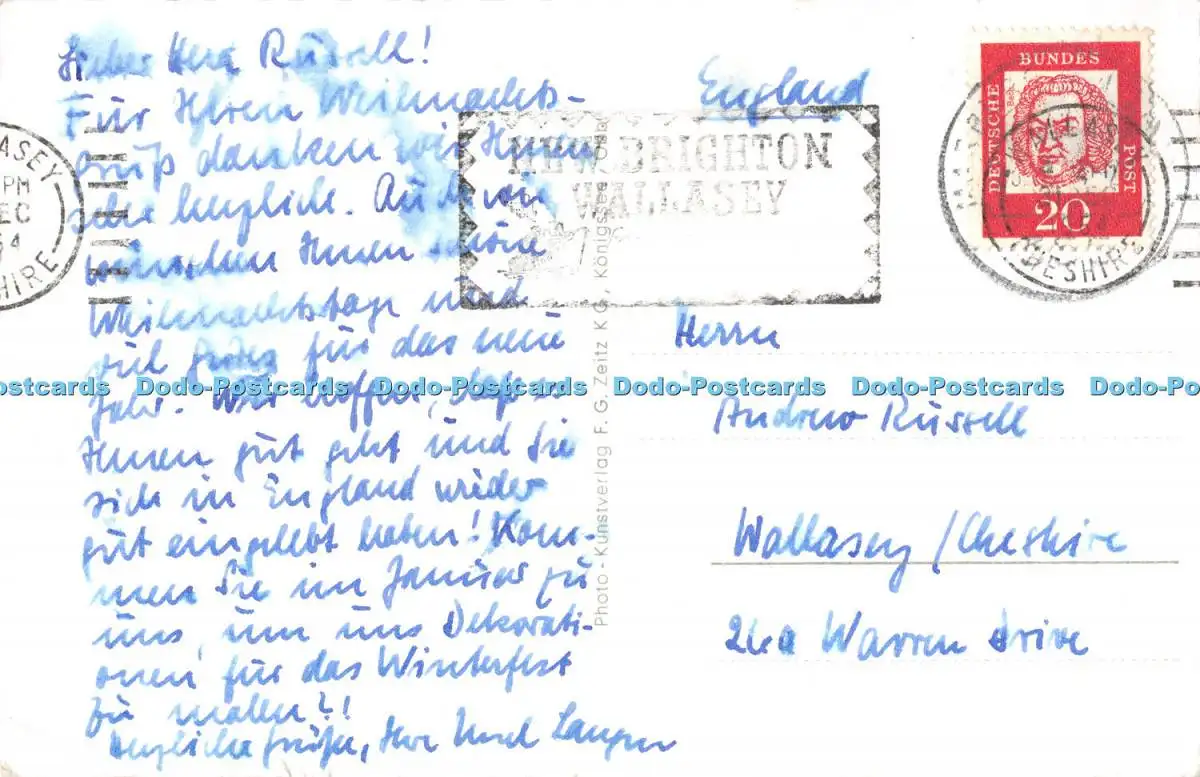 Lieber Herr Russell!
Für Ihren Weihnachts-
gruß danken wir Ihnen
sehr herzlich. Auch wir
wünschen Ihnen schöne
Weihnachtstage und
viel für das neue
Jahr. Wir hoffen, daß es
Ihnen gut geht und Sie
sich in England wieder
gut eingelebt haben! Kom-
men Sie im Januar zu
uns, um uns Dekorati-
onen für das Winterfest
zu malen?!
Herzliche Grüße, Ihre
England
Herrn
Andrew Russell
Wallasey / Cheshire
24a Warren Drive
NEW BRIGHTON
WALLASEY
DEUTSCHE
BUNDES
POST
20
CHESHIRE
LASEY
PM
DEC
64
SHIRE
Photo-Kunstverlag F. G. Zeitz KG., Königsee
Dodo-Postcards Dodo-Postcards Dodo-Postcards Dodo-Postcards Dodo-Postcards